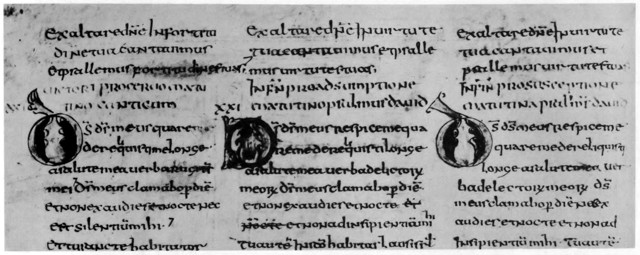 Exaltare dñe In fortitu
dine tua cantauimus
& psallemus fortitudines tuas
uictori pro cerua matu
tino canticum
XXI
Ds ds meus quare
dereliquisti me longe
a salute mea uerba
mei ds meus clamabo p diē
et non exaudies et nocte nec
est silentiū mihi
Et tu sancte habitator
Exaltare dñe In uirtute
tua cantauimus et psalle
mus uirtutes tuas
In fin pro adsumptione
matutino psalmus dauid
XXI
Ds ds meus respice me qua
re me dereliquisti longe
a salute mea uerba delictorū
meorū ds meus clamabo p diē
et non exaudies et nocte et
nocte et non ad insipientiā mihi
Tu autē In sco habitas laus isrl
Exaltare dñe In uirtute
tua cantauimus et
psallemus uirtutes tuas
In fin pro susceptione
matutina psalmus dauid
Ds ds meus respice me
quare me dereliquisti
longe a salute mea uer
ba delictorū meorū ds
meus clamabo p diē nec ex
audies et nocte et non ad
Insipientiā mihi Tu autē